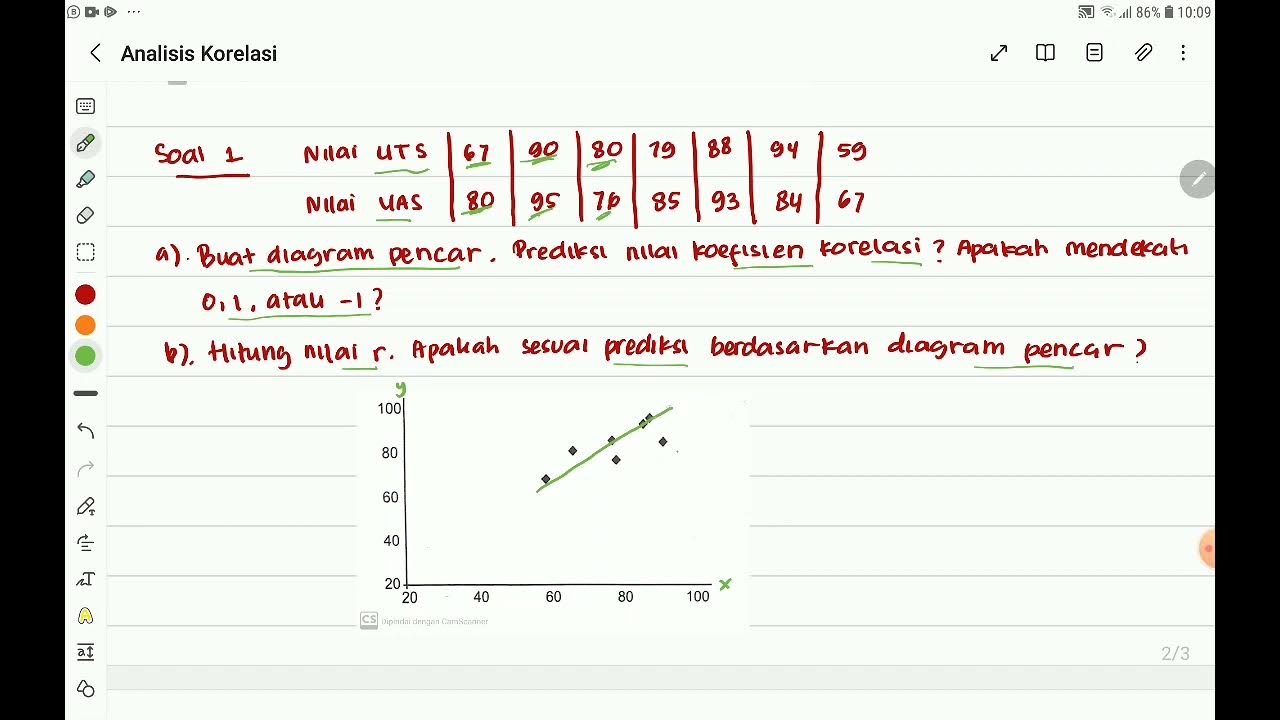 86% 10:09
Analisis Korelasi
Soal 1 Nilai UTS 67 90 80 79 88 94 59
Nilai UAS 80 95 76 85 93 84 67
a). Buat diagram pencar. Prediksi nilai koefisien korelasi? Apakah mendekati
0, 1, atau -1?
b). Hitung nilai r. Apakah sesuai prediksi berdasarkan diagram pencar?
y
100
80
60
40
20
20 40 60 80 100 x
CS Dipindai dengan CamScanner
2/3